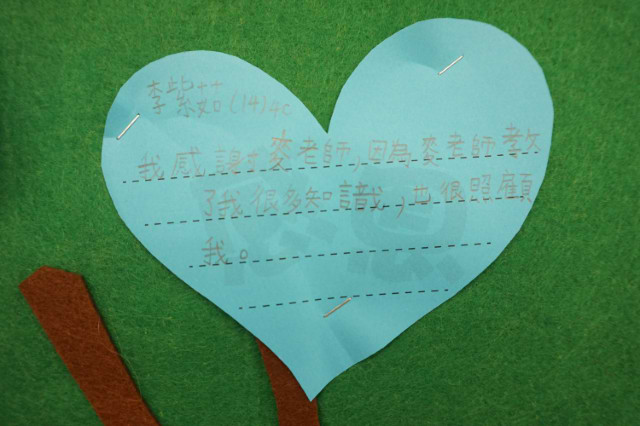 李紫茹(14)4c
我感謝麥老師,因為麥老師教
了我很多知識,也很照顧
我。
感恩